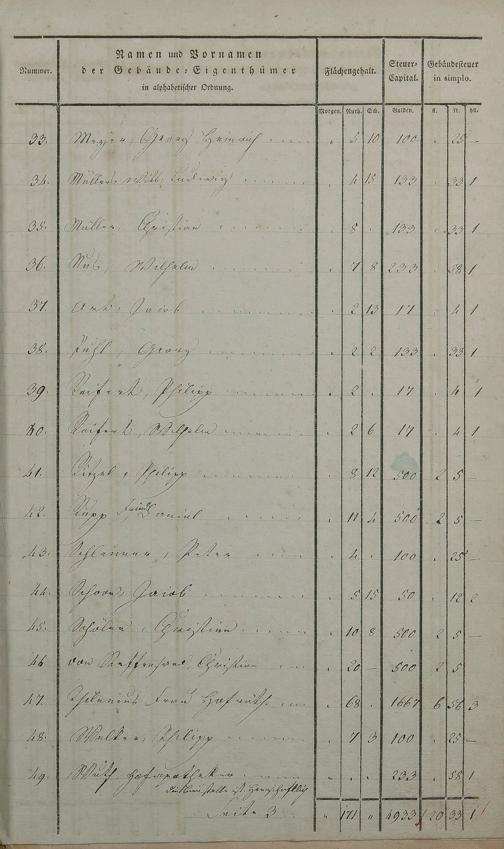 Nummer. Namen und Vornamen der Gebäude-Eigenthümer in alphabetischer Ordnung. Flächengehalt. Steuer-Capital. Gebäudesteuer in simplo.
Morgen. Ruth. Sch. Gulden. fl. kr. hll.
33. Meyer, Georg Heinrich . 5 10 100 . 25 –
34. Müller, Ludwig . 4 15 133 . 33 1
35. Müller, Christian . 8 . 133 . 33 1
36. Wilhelm . 7 8 233 . 58 1
37. Jacob . 2 13 17 . 4 1
38. Georg . 2 2 133 . 33 1
39. Reifert, Philipp . 2 . 17 . 4 1
40. Reifert, Wilhelm . 2 6 17 . 4 1
41. Ritzel, Philipp . 8 12 500 2 5 –
42. Rupp Daniel . 11 4 500 2 5 –
43. Peter . 4 . 100 . 25 –
44. Jacob . 5 15 50 . 12 2
45. Christian . 10 8 500 2 5 –
46 von Christian . 20 – 500 2 5
47. Thelenius Frau Hofräthin . 68 . 1667 6 56 3
48. Walker, Philipp . 7 3 100 . 25 –
49. Wuth Hofapotheker . . . 233 . 58 1
ist Herrschaftlich
Seite 3 " 171 " 4933 20 33 1